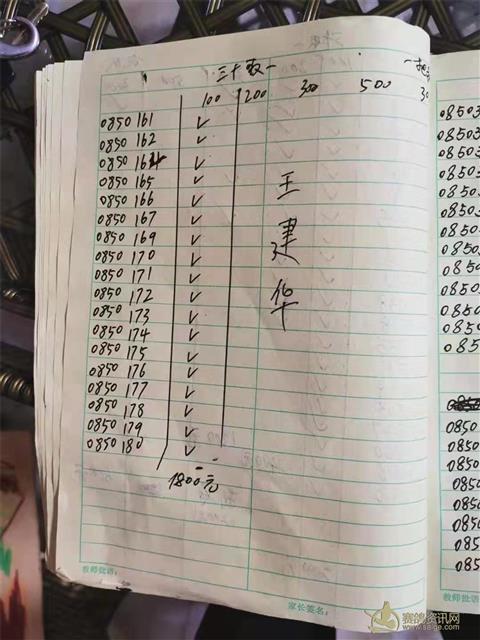 三十取一
100 200 300 500
0850 161 ✓
0850 162 ✓
0850 164 ✓
0850 165 ✓
0850 166 ✓
0850 167 ✓
0850 169 ✓
0850 170 ✓
0850 171 ✓
0850 172 ✓
0850 173 ✓
0850 174 ✓
0850 175 ✓
0850 176 ✓
0850 177 ✓
0850 178 ✓
0850 179 ✓
0850 180 ✓
1800元
王建华
教师批语:
家长签名:
08503
08503
08503
0850
0850
0850
0850
0850
0850
0850
0850
0850
085
0850
0850
0850
0850
0850
0850
0850
教师批语
赛鸽资讯网
www.saige.com